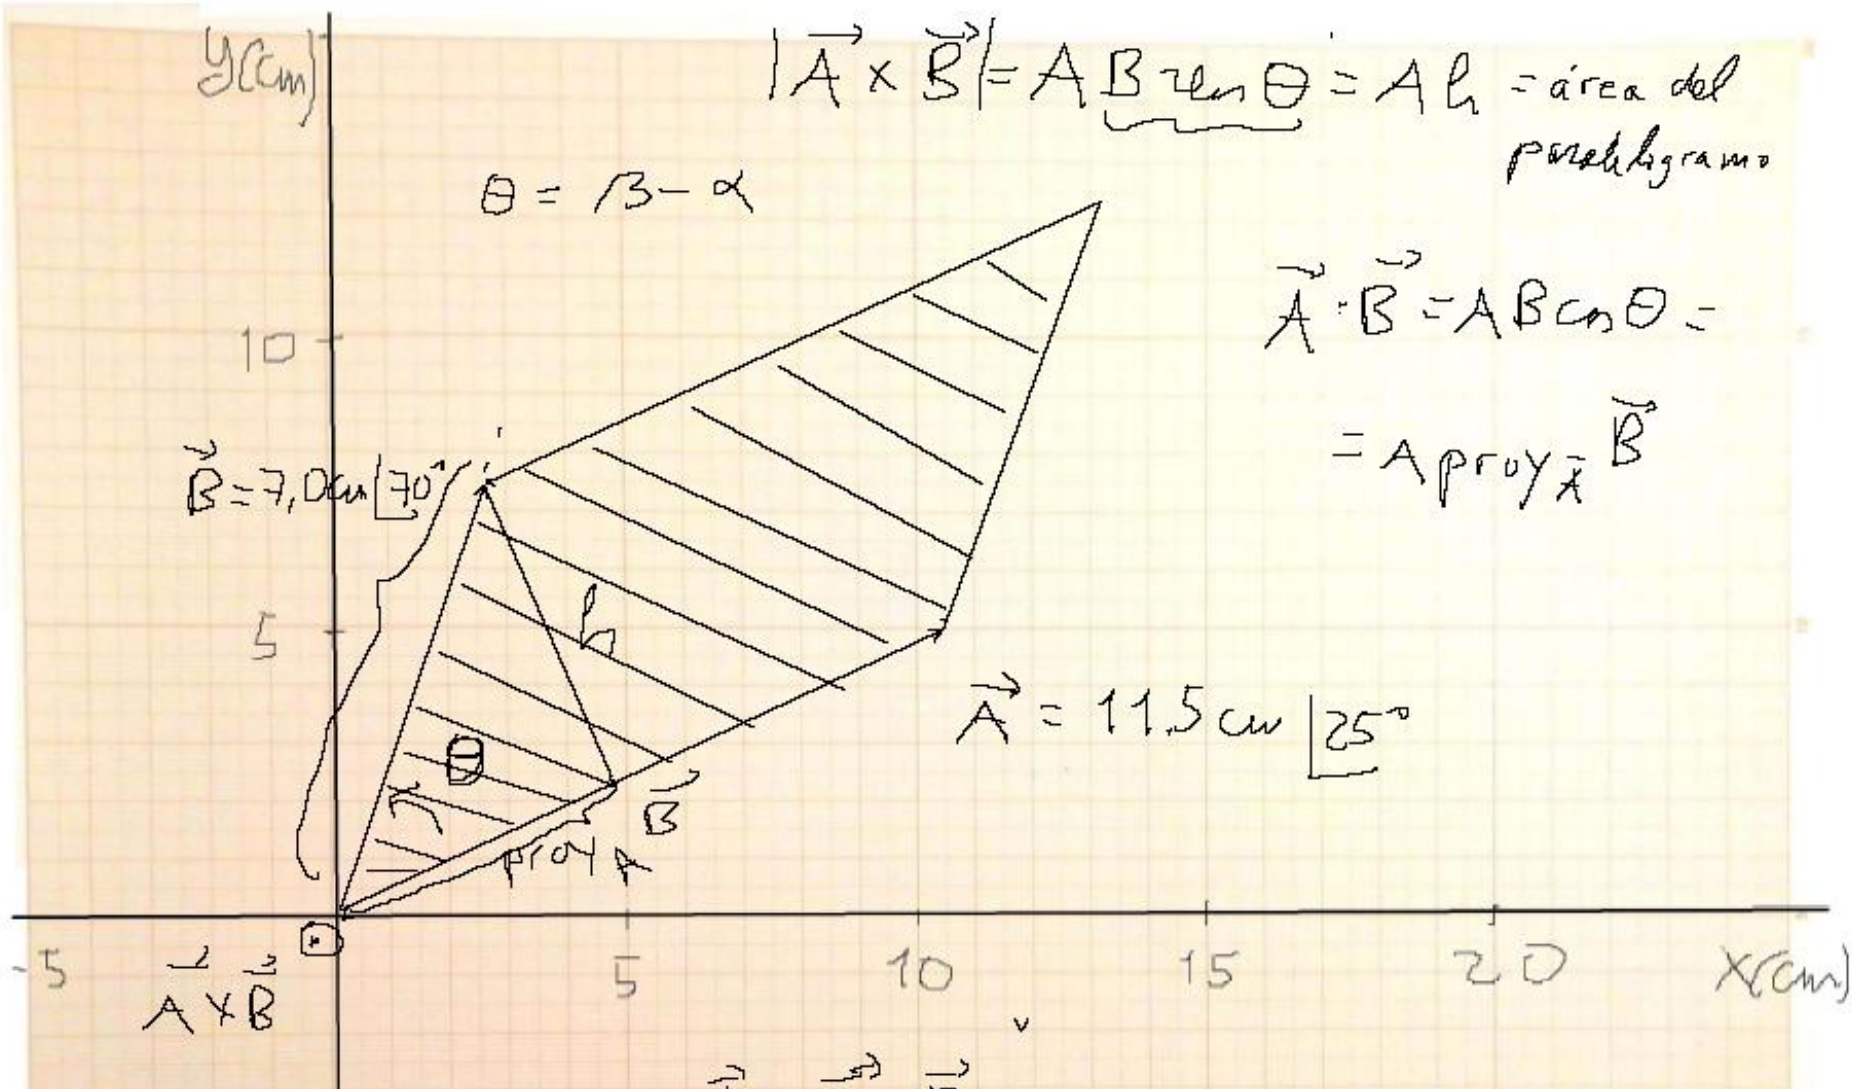 y(cm)
|A⃗ × B⃗| = A B sen θ = A h = área del
paralelogramo
θ = β - α
A⃗ · B⃗ = A B cos θ =
= A proy A⃗ B⃗
10
B⃗ = 7,0 cm |70°
h
5
A⃗ = 11,5 cm |25°
θ
proy A B⃗
-5
5
10
15
20
x(cm)
A⃗ × B⃗